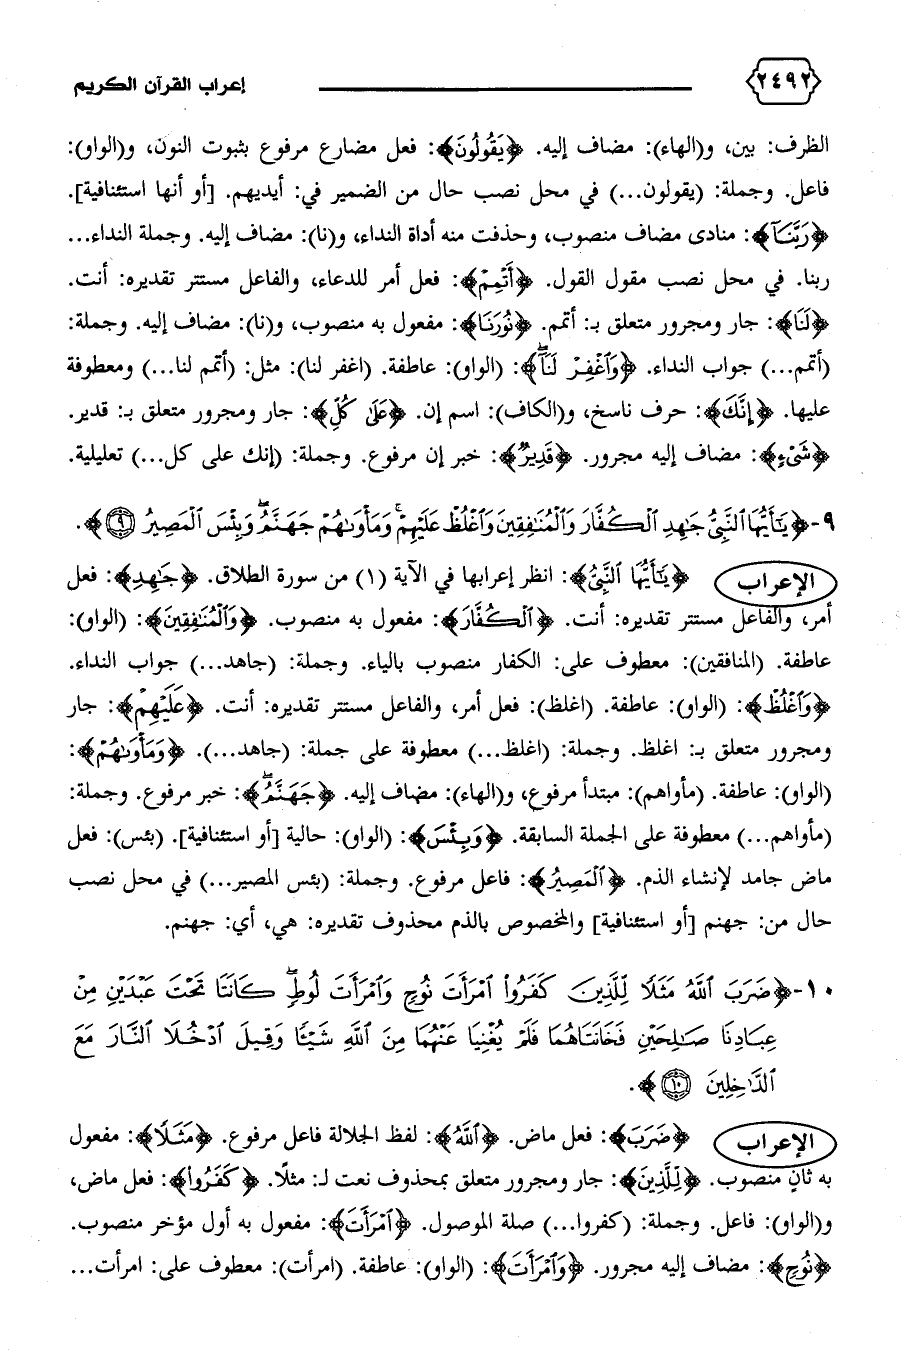 ٢٤٩٢ إعراب القرآن الكريم
الظرف: بين، و(الهاء): مضاف إليه. ﴿يَقُولُونَ﴾: فعل مضارع مرفوع بثبوت النون، و(الواو):
فاعل. وجملة: (يقولون...) في محل نصب حال من الضمير في: أيديهم. [أو أنها استئنافية].
﴿رَبَّنَآ﴾: منادى مضاف منصوب، وحذفت منه أداة النداء، و(نا): مضاف إليه. وجملة النداء...
ربنا. في محل نصب مقول القول. ﴿أَتْمِمْ﴾: فعل أمر للدعاء، والفاعل مستتر تقديره: أنت.
﴿لَنَا﴾: جار ومجرور متعلق بـ: أتمم. ﴿نُورَنَا﴾: مفعول به منصوب، و(نا): مضاف إليه. وجملة:
(أتمم...) جواب النداء. ﴿وَٱغْفِرْ لَنَآۖ﴾: (الواو): عاطفة. (اغفر لنا): مثل: (أتمم لنا...) ومعطوفة
عليها. ﴿إِنَّكَ﴾: حرف ناسخ، و(الكاف): اسم إن. ﴿عَلَىٰ كُلِّ﴾: جار ومجرور متعلق بـ: قدير.
﴿شَىْءٍ﴾: مضاف إليه مجرور. ﴿قَدِيرٌ﴾: خبر إن مرفوع. وجملة: (إنك على كل...) تعليلية.
٩-﴿يَـٰٓأَيُّهَا ٱلنَّبِىُّ جَـٰهِدِ ٱلْكُفَّارَ وَٱلْمُنَـٰفِقِينَ وَٱغْلُظْ عَلَيْهِمْۚ وَمَأْوَىٰهُمْ جَهَنَّمُۖ وَبِئْسَ ٱلْمَصِيرُ ٩﴾.
الإعراب ﴿يَـٰٓأَيُّهَا ٱلنَّبِىُّ﴾: انظر إعرابها في الآية (١) من سورة الطلاق. ﴿جَـٰهِدِ﴾: فعل
أمر، والفاعل مستتر تقديره: أنت. ﴿ٱلْكُفَّارَ﴾: مفعول به منصوب. ﴿وَٱلْمُنَـٰفِقِينَ﴾: (الواو):
عاطفة. (المنافقين): معطوف على: الكفار منصوب بالياء. وجملة: (جاهد...) جواب النداء.
﴿وَٱغْلُظْ﴾: (الواو): عاطفة. (اغلظ): فعل أمر، والفاعل مستتر تقديره: أنت. ﴿عَلَيْهِمْ﴾: جار
ومجرور متعلق بـ: اغلظ. وجملة: (اغلظ...) معطوفة على جملة: (جاهد...). ﴿وَمَأْوَىٰهُمْ﴾:
(الواو): عاطفة. (مأواهم): مبتدأ مرفوع، و(الهاء): مضاف إليه. ﴿جَهَنَّمُۖ﴾: خبر مرفوع. وجملة:
(مأواهم...) معطوفة على الجملة السابقة. ﴿وَبِئْسَ﴾: (الواو): حالية [أو استئنافية]. (بئس): فعل
ماض جامد لإنشاء الذم. ﴿ٱلْمَصِيرُ﴾: فاعل مرفوع. وجملة: (بئس المصير...) في محل نصب
حال من: جهنم [أو استئنافية] والمخصوص بالذم محذوف تقديره: هي، أي: جهنم.
١٠-﴿ضَرَبَ ٱللَّهُ مَثَلًا لِّلَّذِينَ كَفَرُوا۟ ٱمْرَأَتَ نُوحٍ وَٱمْرَأَتَ لُوطٍۖ كَانَتَا تَحْتَ عَبْدَيْنِ مِنْ
عِبَادِنَا صَـٰلِحَيْنِ فَخَانَتَاهُمَا فَلَمْ يُغْنِيَا عَنْهُمَا مِنَ ٱللَّهِ شَيْـًٔا وَقِيلَ ٱدْخُلَا ٱلنَّارَ مَعَ
ٱلدَّٰخِلِينَ ١٠﴾.
الإعراب ﴿ضَرَبَ﴾: فعل ماض. ﴿ٱللَّهُ﴾: لفظ الجلالة فاعل مرفوع. ﴿مَثَلًا﴾: مفعول
به ثانٍ منصوب. ﴿لِّلَّذِينَ﴾: جار ومجرور متعلق بمحذوف نعت لـ: مثلًا. ﴿كَفَرُوا۟﴾: فعل ماض،
و(الواو): فاعل. وجملة: (كفروا...) صلة الموصول. ﴿ٱمْرَأَتَ﴾: مفعول به أول مؤخر منصوب.
﴿نُوحٍ﴾: مضاف إليه مجرور. ﴿وَٱمْرَأَتَ﴾: (الواو): عاطفة. (امرأت): معطوف على: امرأت...